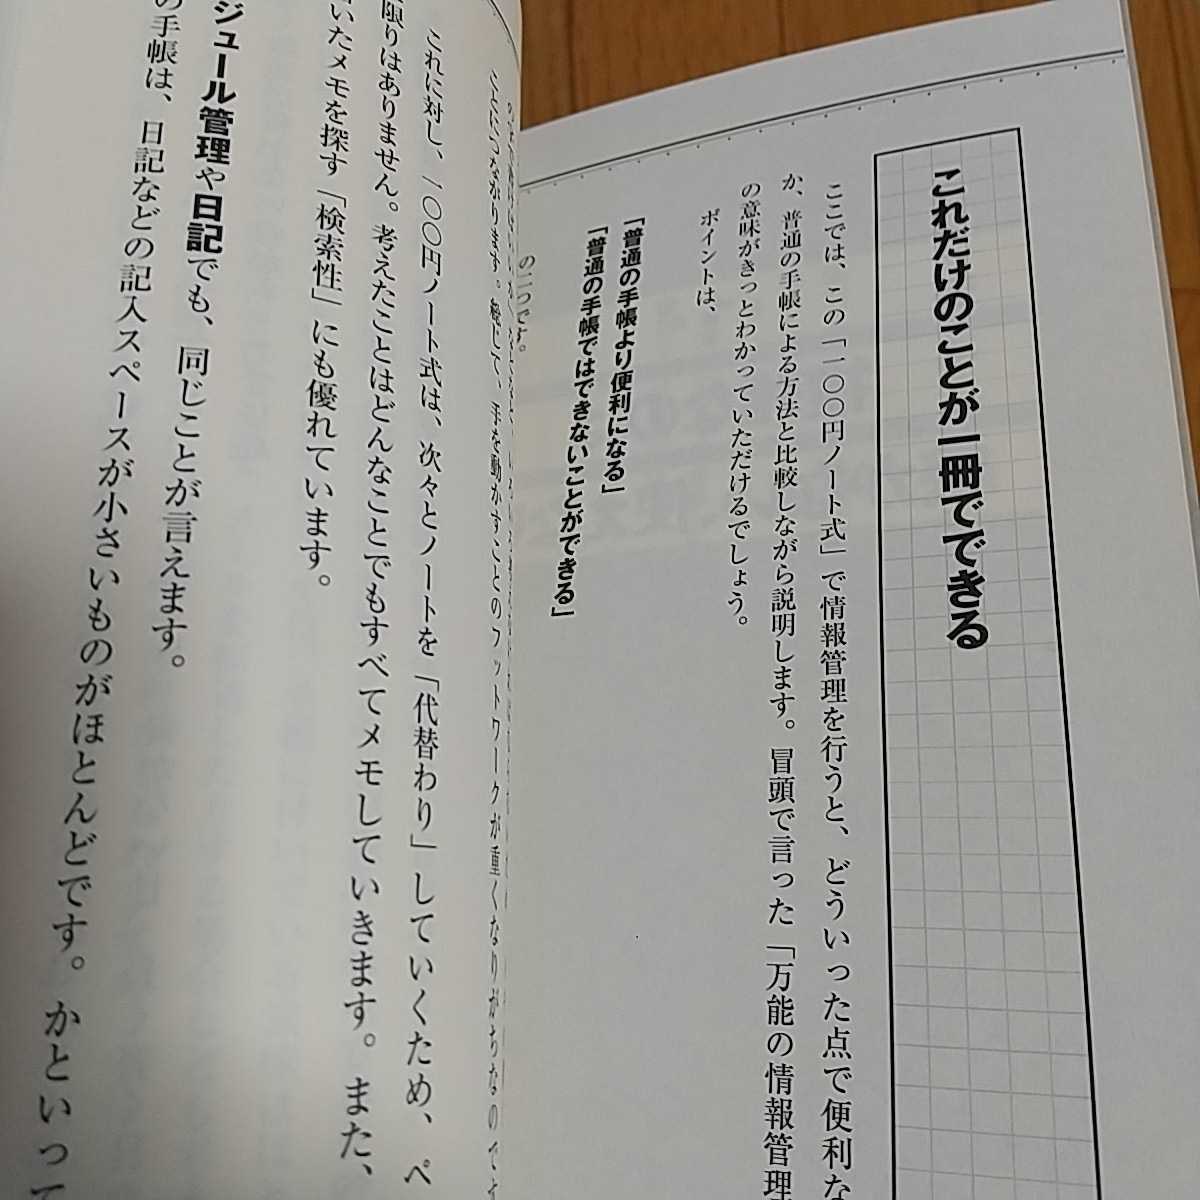 これだけのことが一冊でできる
ここでは、この「一〇〇円ノート式」で情報管理を行うと、どういった点で便利な
か、普通の手帳による方法と比較しながら説明します。冒頭で言った「万能の情報管理
の意味がきっとわかっていただけるでしょう。
ポイントは、
「普通の手帳より便利になる」
「普通の手帳ではできないことができる」
の二つです。
ことにつながります。総じて、手を動かすことのフットワークが重くなりがちなのです
これに対し、一〇〇円ノート式は、次々とノートを「代替わり」していくため、ペ
限りはありません。考えたことはどんなことでもすべてメモしていきます。また、
いたメモを探す「検索性」にも優れています。
ジュール管理や日記でも、同じことが言えます。
の手帳は、日記などの記入スペースが小さいものがほとんどです。かといって